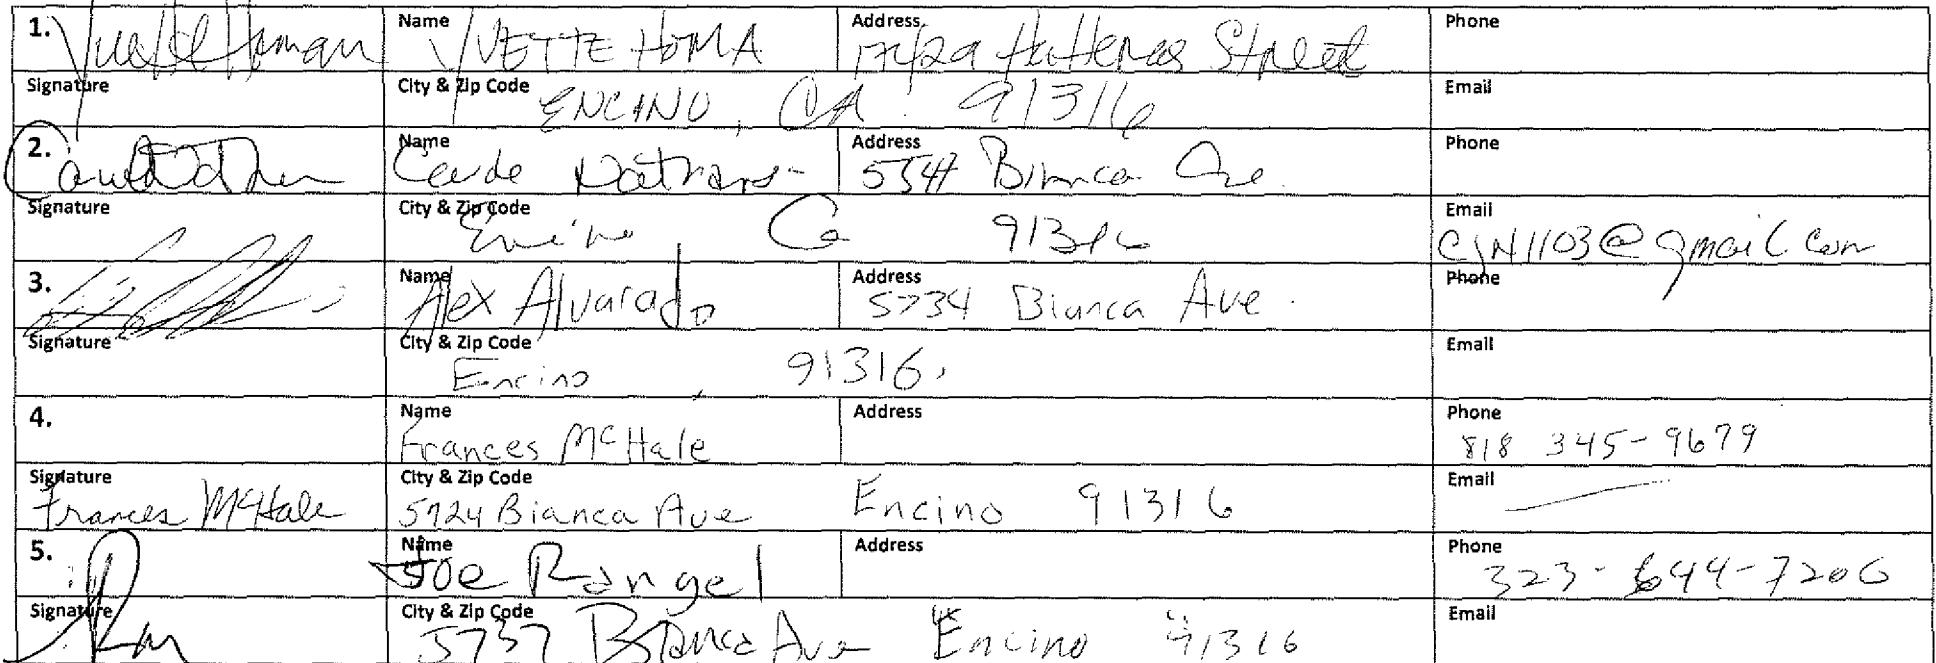 1. Name YVETTE HOMA Address Hatteras Street Phone
Signature City & Zip Code ENCINO, CA 91316 Email
2. Name Address Bianca Ave. Phone
Signature City & Zip Code Encino Ca 91316 Email CJN1103@gmail.com
3. Name Alex Alvarado Address 5734 Bianca Ave. Phone
Signature City & Zip Code Encino, 91316. Email
4. Name Frances McHale Address Phone 818 345-9679
Signature Frances McHale City & Zip Code 5724 Bianca Ave Encino 91316 Email
5. Name Joe Rangel Address Phone 323-644-7206
Signature City & Zip Code 5737 Bianca Ave Encino 91316 Email